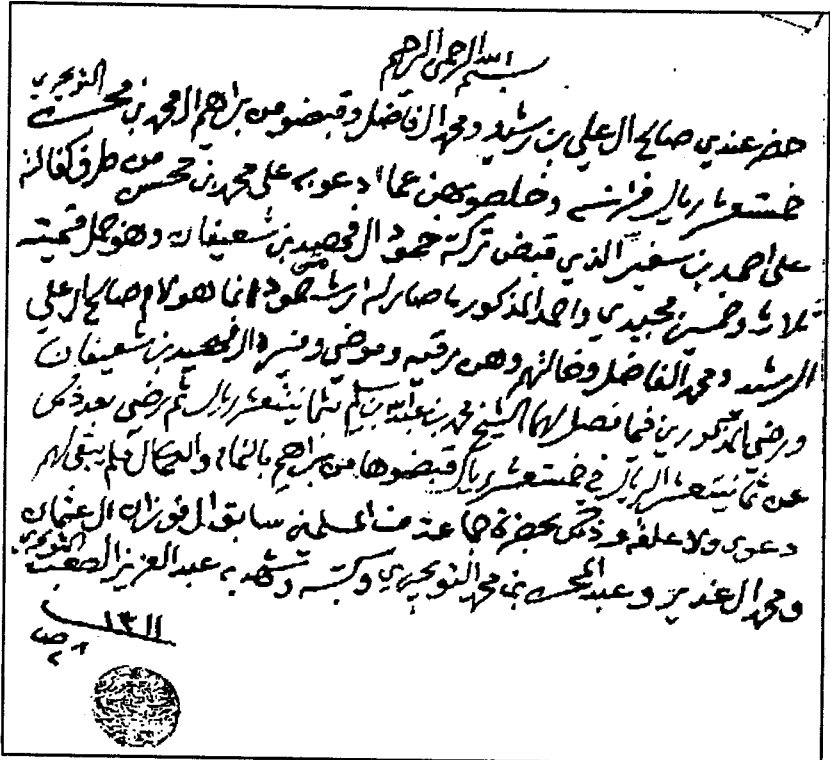 بسم الله الرحمن الرحيم
حضر عندي صالح ال علي بن رشيد ومحمد ال فاضل وقبضو من براهيم ال محمد بن محسن التويجري
خمستعشر ريال فرانسه وخلصوهن عما ادعو به على محمد بن محسن من طرف كفالته
على احمد بن سفير الذي قبض تركة حمود ال فهيد بن شعيفان وهو جمل قيمته
ثلاث وخمسين مجيدي واحمد المذكور ما صار له ارث من حمود انما هو لام صالح ال علي
الرشيد ومحمد الفاضل وخالتهم وهن مرقيه وموضي ونسره ال فهيد بن شعيفان
ورضي المذكورين فيما فصل لهما الشيخ محمد بن عبدالله بن سليم ثمانيتعشر ريال ثم رضي بعد ذلك
عن ثمانيتعشر الريال في خمستعشر ريال قبضوها من براهيم بالتمام والكمال فلم يبقى لهم
دعوى ولا علقه وذلك بحضرة جماعة من المسلمين سابق ال فوزان ال عثمان
ومحمد ال غدير وعبد المحسن بن محمد التويجري وكتبه وشهد به عبد العزيز الصعب التويجري
١٣١١
٢ ص